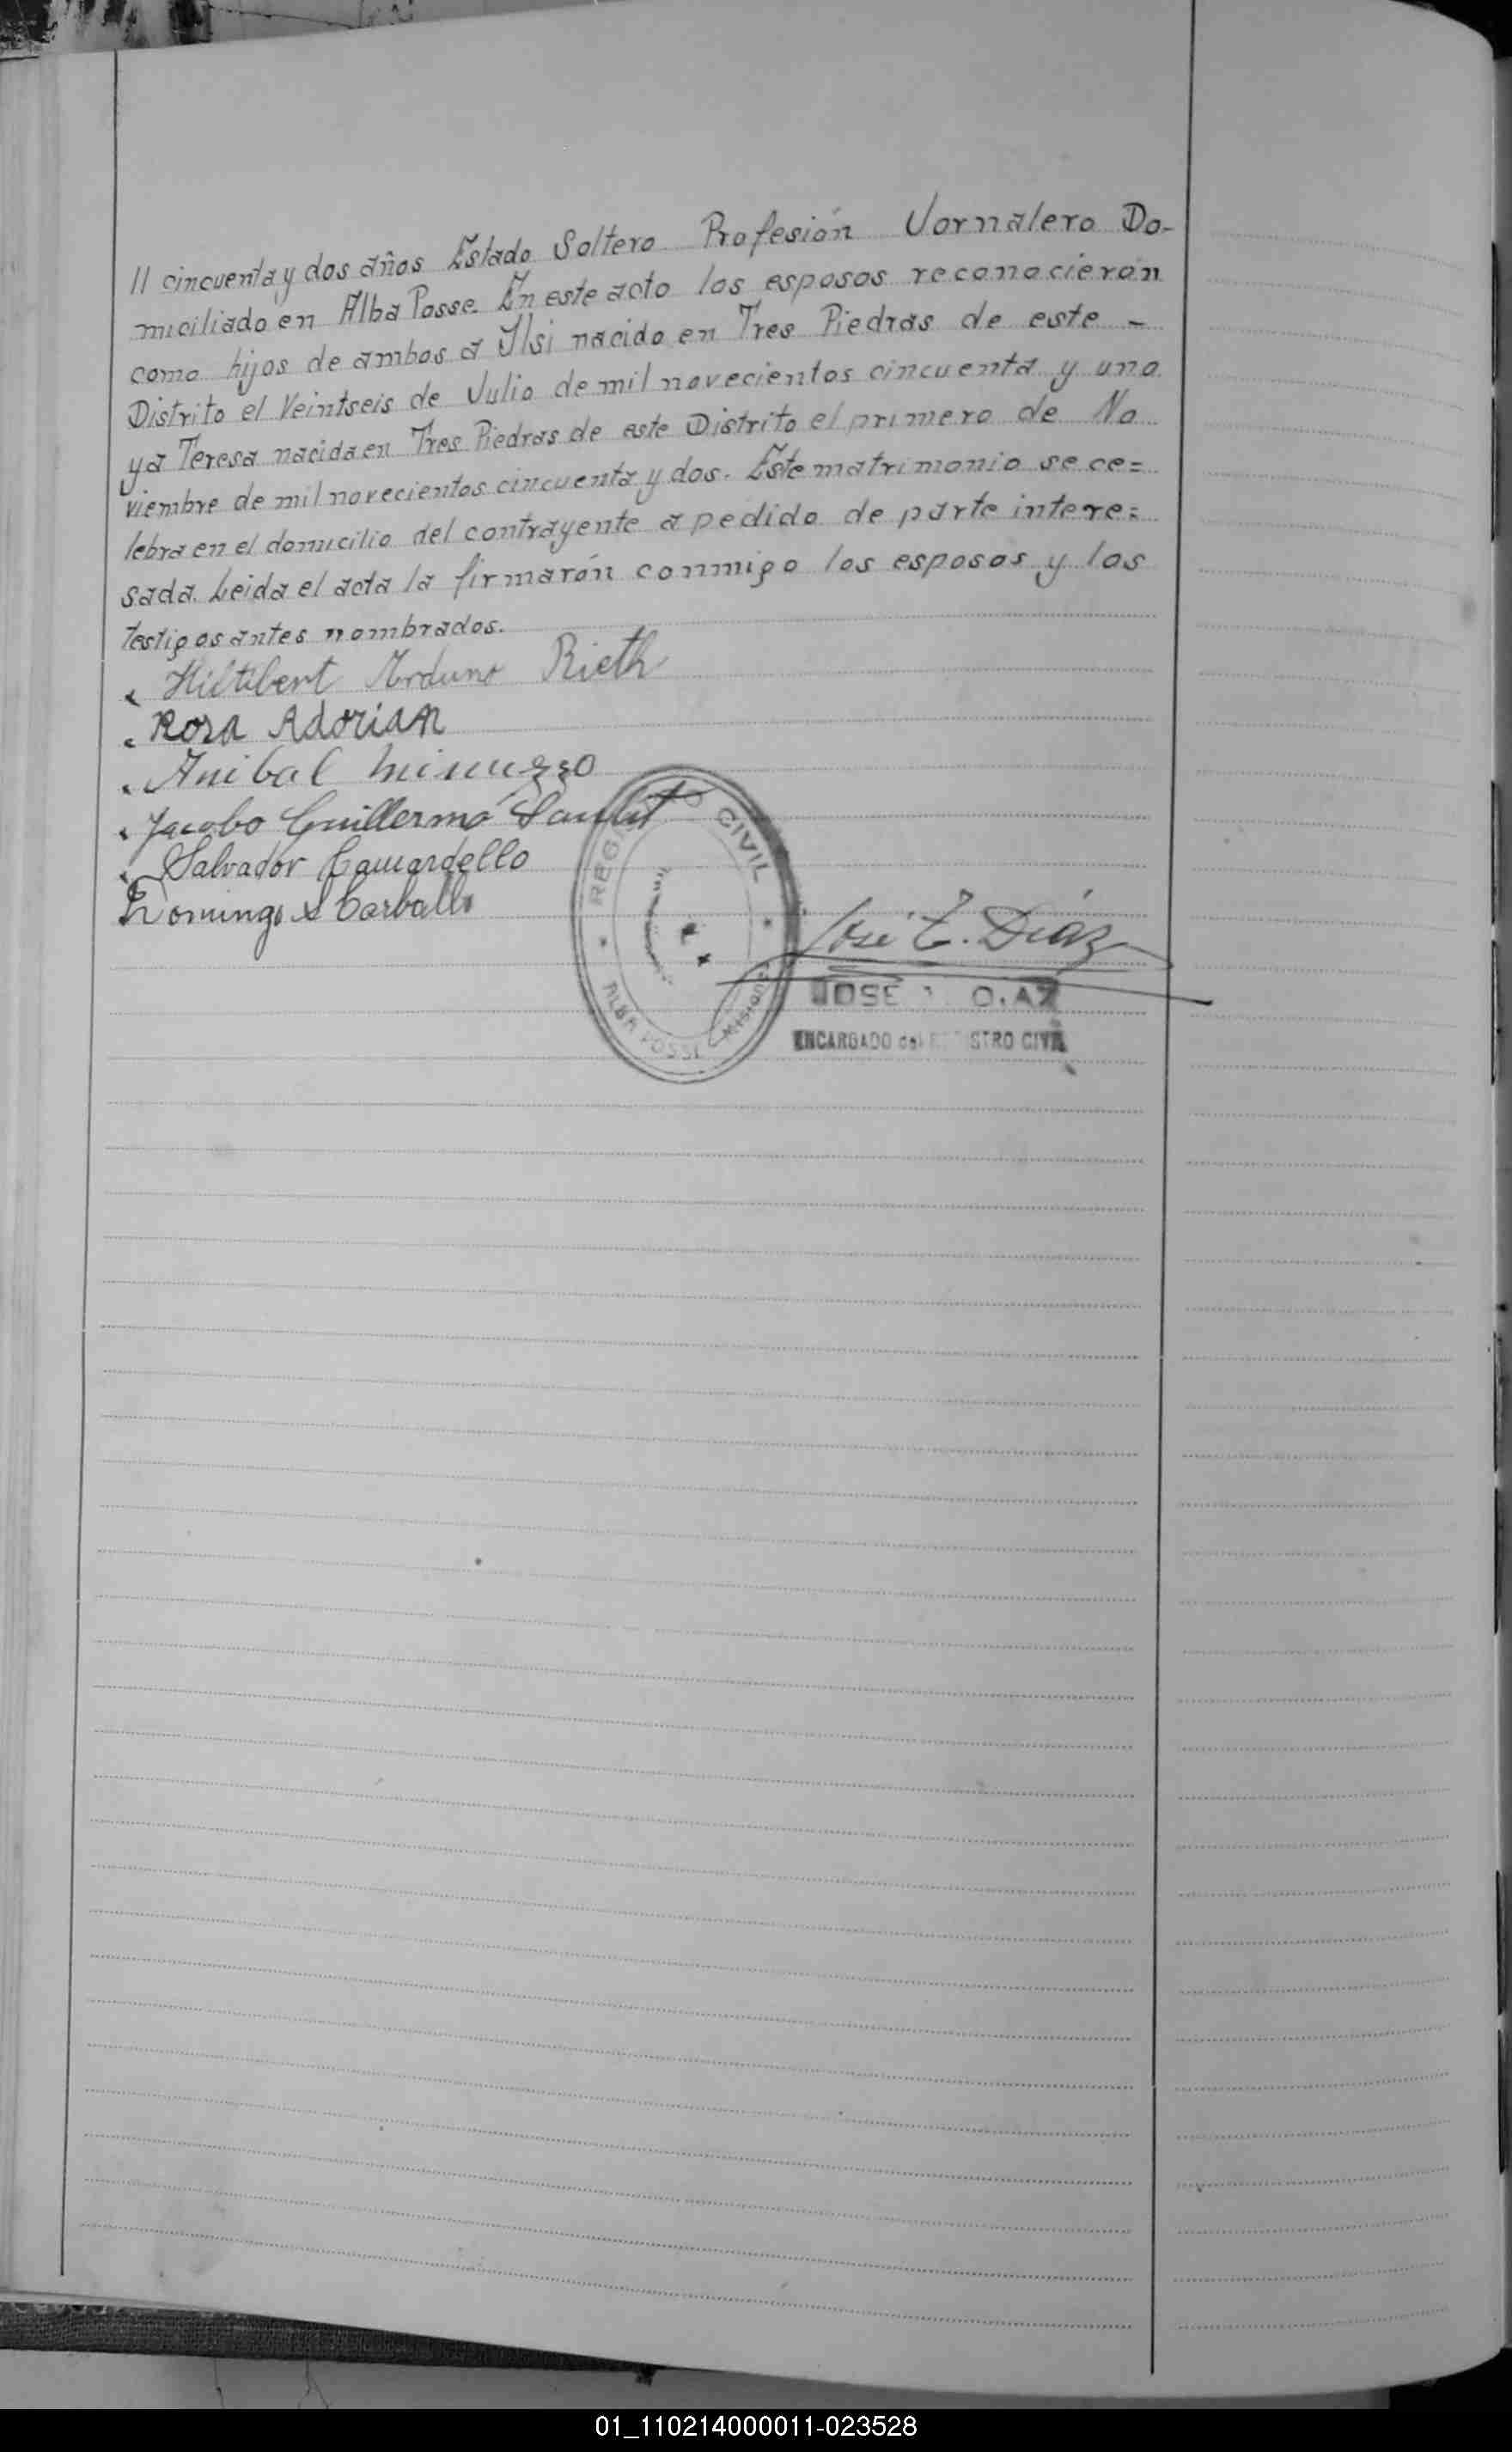 // cincuenta y dos años Estado Soltero Profesión Jornalero Do-
miciliado en Alba Posse. En este acto los esposos reconocierón
como hijos de ambos a Ilsi nacido en Tres Piedras de este -
Distrito el Veintseis de Julio de mil novecientos cincuenta y uno
y a Teresa nacida en Tres Piedras de este Distrito el primero de No
viembre de mil novecientos cincuenta y dos. Este matrimonio se ce=
lebra en el domicilio del contrayente a pedido de parte intere=
sada. Leida el acta la firmarón conmigo los esposos y los
testigos antes nombrados.
Rieth
Rosa Adorian
Anibal
Jacobo Guillermo
Salvador Camardello
Domingo Carballo
REG CIVIL
ALBA POSSE Misiones
José E. Diáz
JOSE DIAZ
ENCARGADO del REGISTRO CIVIL
01_110214000011-023528